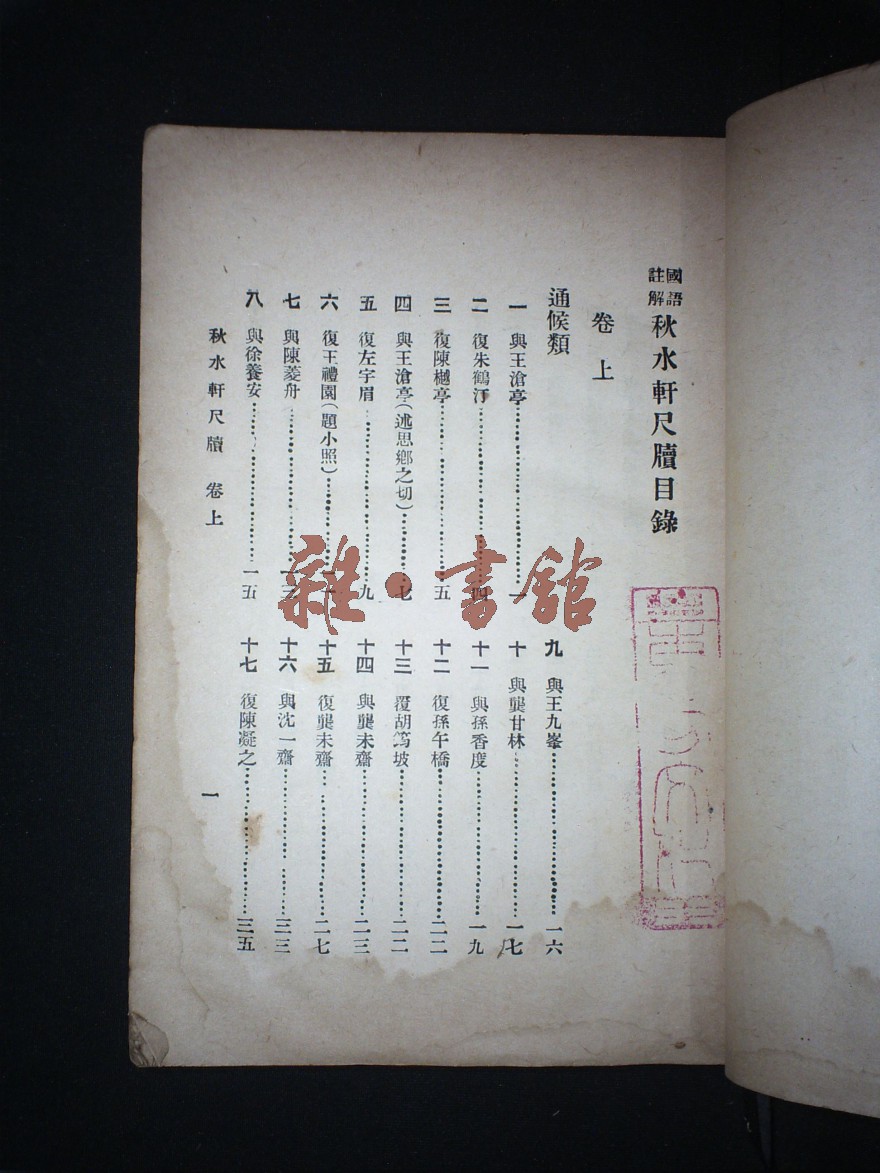 國語註解秋水軒尺牘目錄
卷上
通候類
一 與王滄亭……一
二 復朱鶴汀……四
三 復陳樾亭……五
四 與王滄亭(述思鄉之切)……七
五 復左字眉……九
六 復王禮園(題小照)……
七 與陳菱舟……一三
八 與徐養安……一五
九 與王九峯……一六
十 與龔甘林……一七
十一 與孫香度……一九
十二 復孫午橋……二二
十三 覆胡篤坡……二二
十四 與龔未齋……二三
十五 復龔未齋……二七
十六 與沈一齋……三三
十七 復陳凝之……三五
秋水軒尺牘 卷上
一
雜·書館